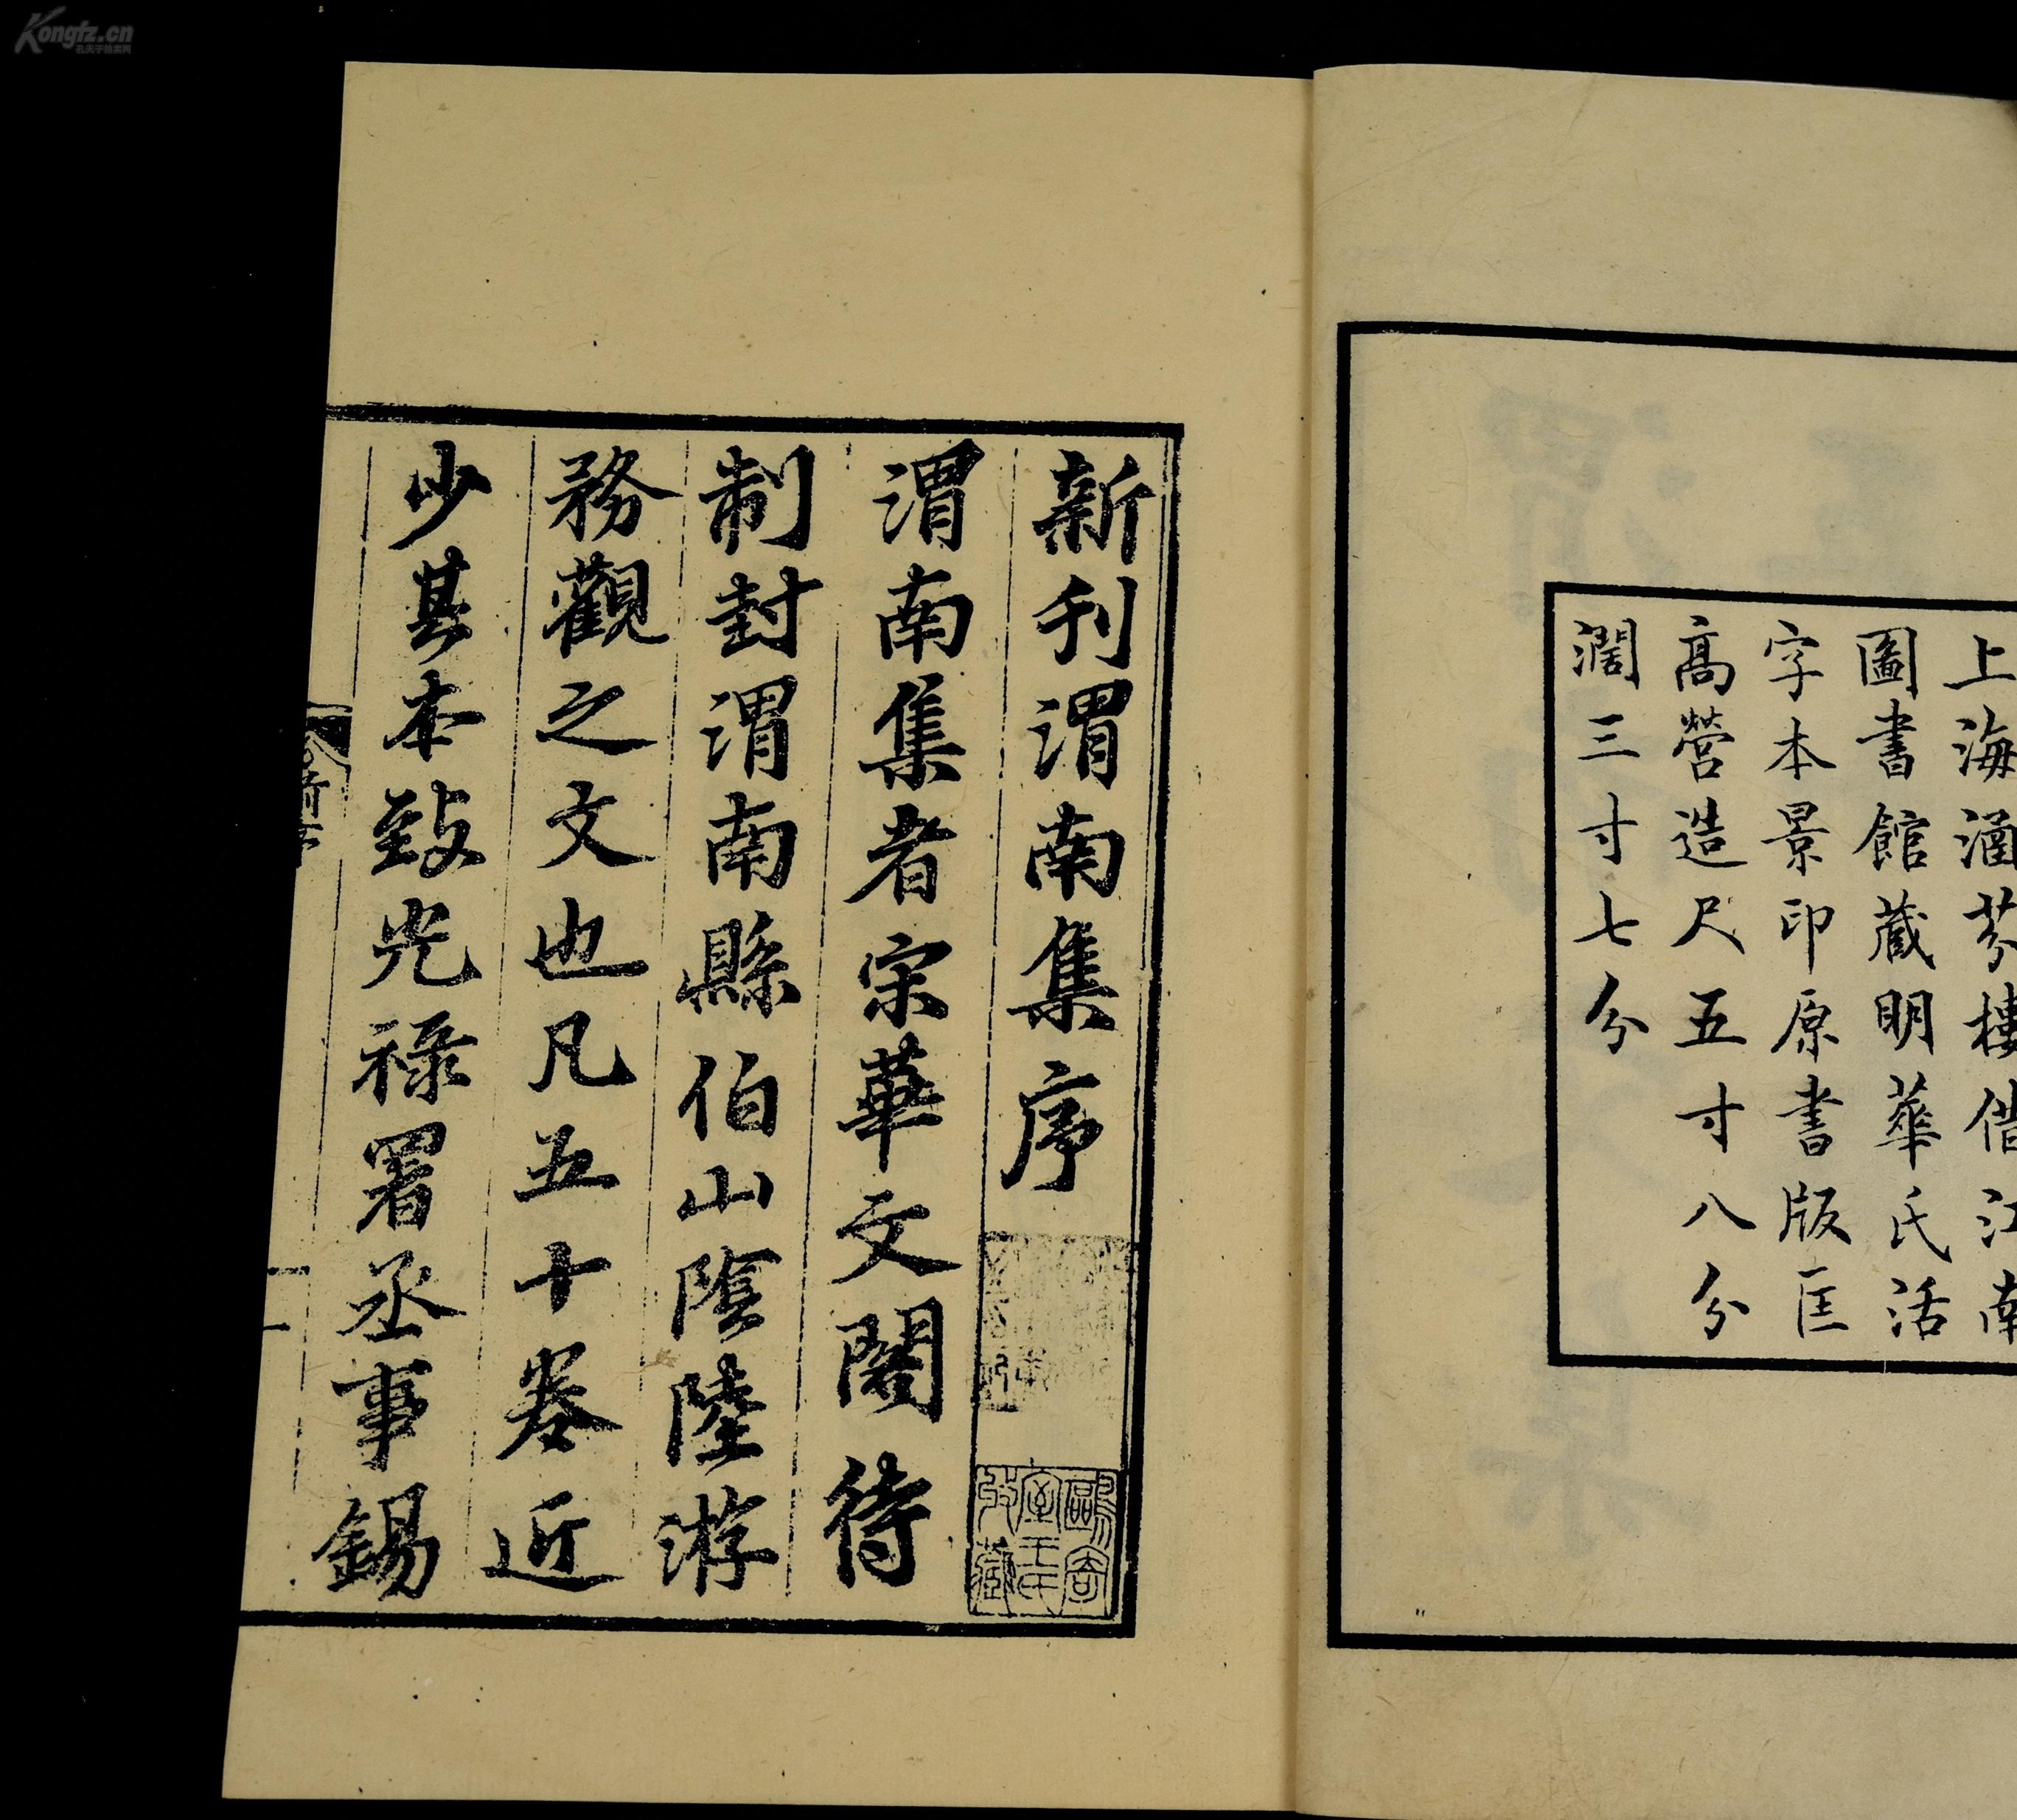 上海涵芬樓借江南
圖書館藏明華氏活
字本景印原書版匡
高營造尺五寸八分
濶三寸七分
新刊渭南集序
渭南集者宋華文閣待
制封渭南縣伯山陰陸游
務觀之文也凡五十卷近
少其本致光祿署丞事錫
鷗寄
室王氏
收藏
Kongfz.cn
孔夫子拍卖网